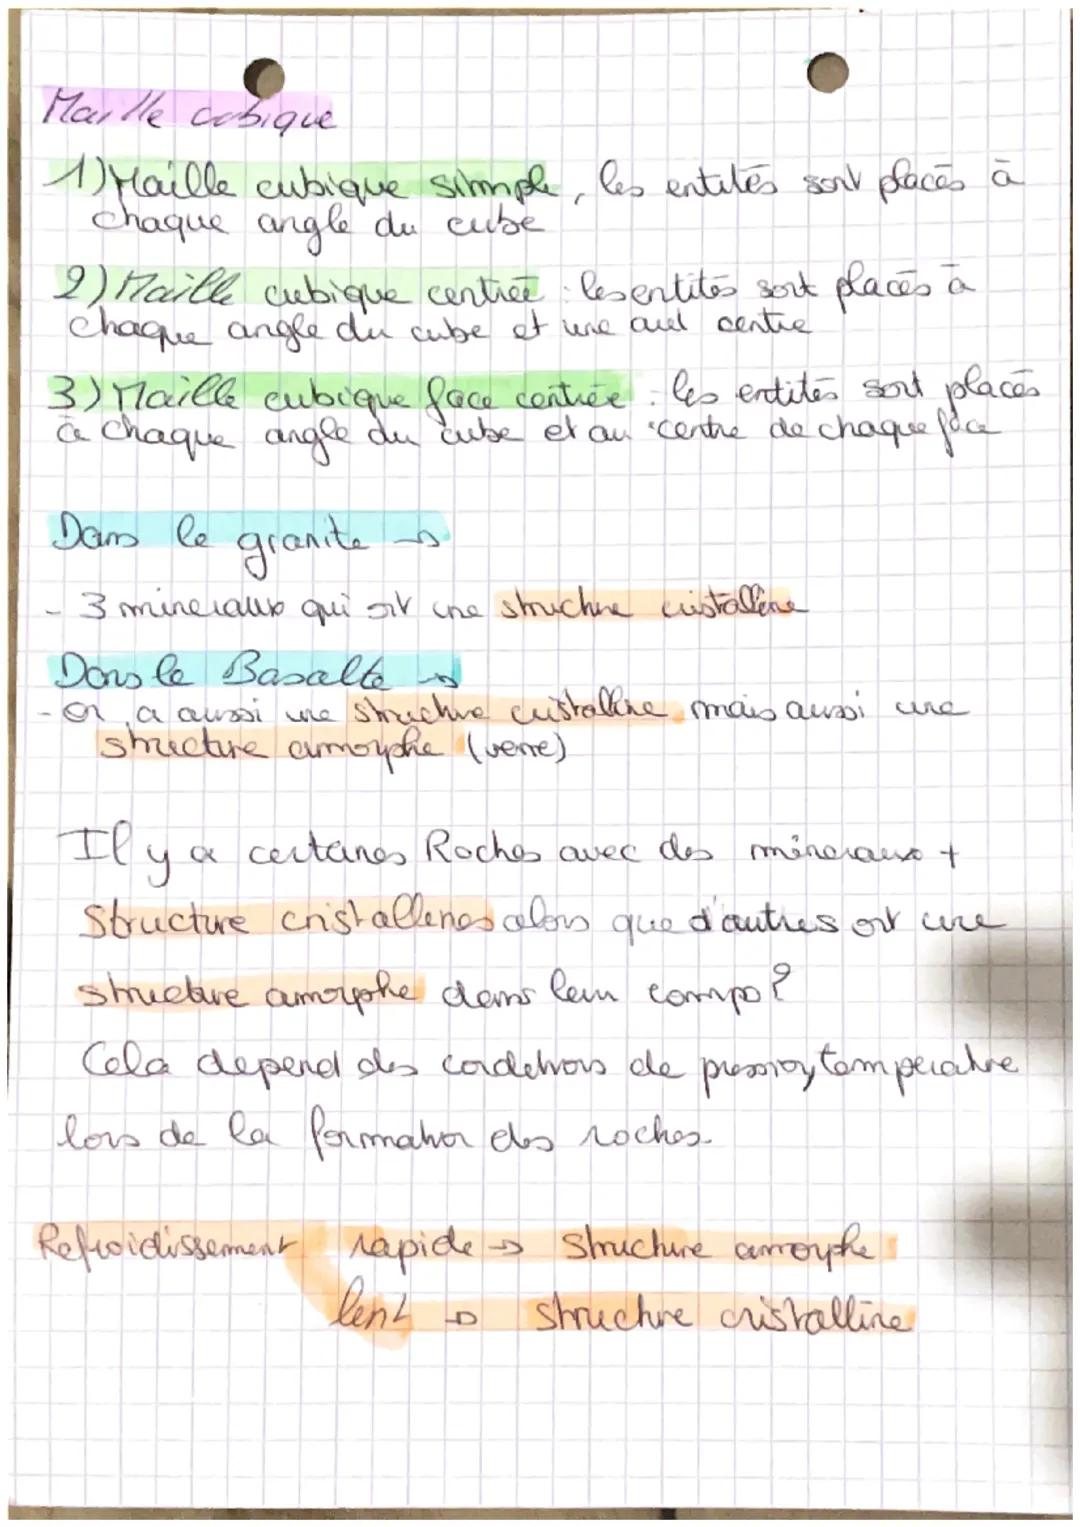 Maille cubique
1) Maille cubique simple, les entités sont placés à
chaque angle du cube
2) Maille cubique centrée : les entités sont placés à
chaque angle du cube et une au centre
3) Maille cubique face centrée : les entités sont placés
à chaque angle du cube et au centre de chaque face
Dans le granite →
- 3 mineraux qui ont une structure cristalline
Dans le Basalte →
- On a aussi une structure cristalline mais aussi une
structure amorphe (verre)
Il y a certaines Roches avec des mineraux +
Structure cristallines alors que d'autres ont une
structure amorphe dans leur compo?
Cela depend des conditions de pression, temperature
lors de la formation des roches.
Refroidissement rapide → structure amorphe
lent → structure cristalline